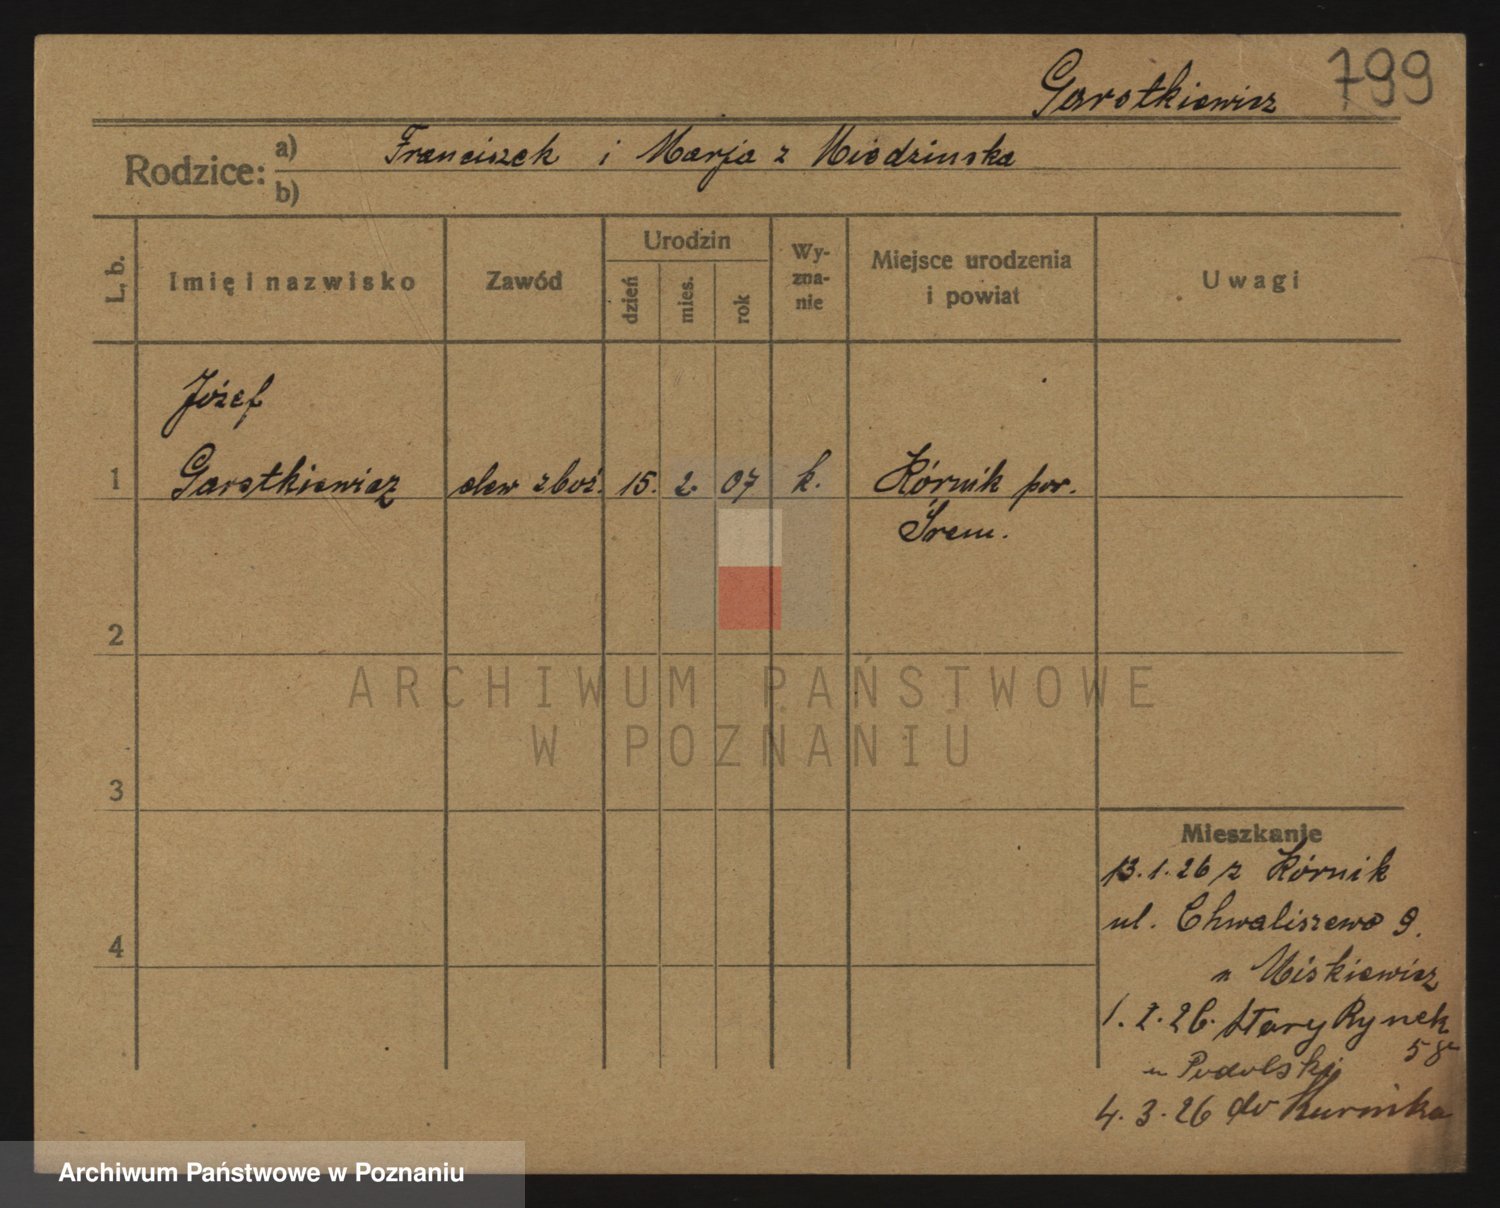 Garstkiewicz 799
Rodzice: a) Franciszek i Marja z Miedzinska
b)
L. b. Imię i nazwisko Zawód Urodzin dzień mies. rok Wy-zna-nie Miejsce urodzenia i powiat Uwagi
Józef
1 Garstkiewicz elew zboż. 15. 2. 07 k. Kórnik pow.
Śrem.
2
ARCHIWUM PAŃSTWOWE
W POZNANIU
3
Mieszkanie
13.1.26 z Kórnik
ul. Chwaliszewo 9.
4
u Miskiewicz
1. 2. 26. Stary Rynek
58
u Podolski
4. 3. 26 do Kurnika
Archiwum Państwowe w Poznaniu